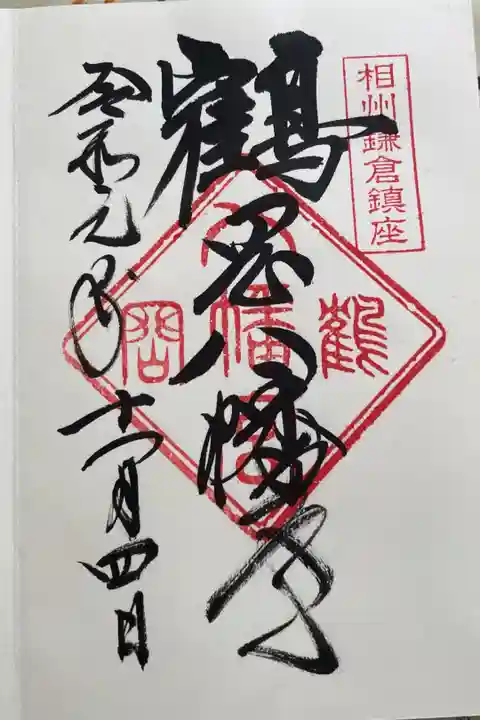 相州鎌倉鎮座
鶴岡八幡宮
鶴
八幡宮
岡
令和元年十一月四日